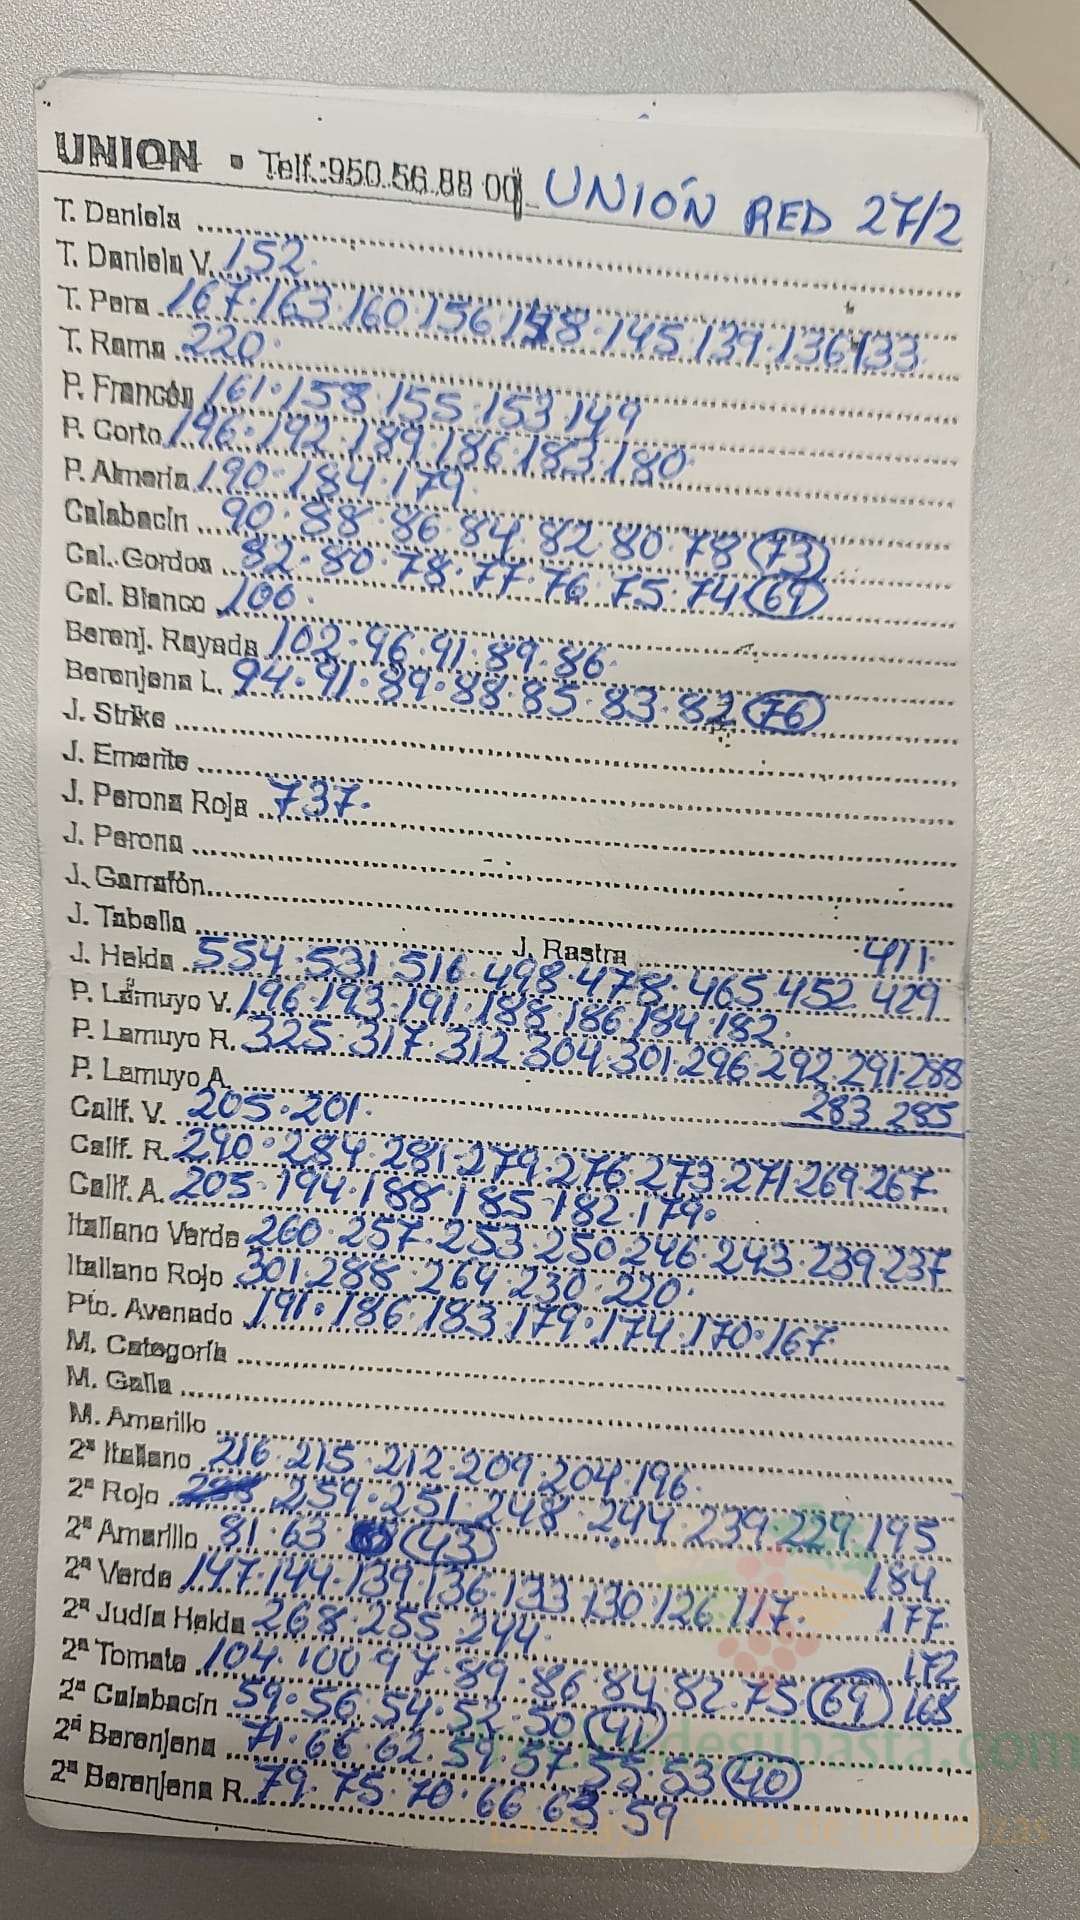 UNION • Telf.:950.56.88 00 UNIÓN RED 27/2
T. Daniela
T. Daniela V. 152.
T. Pera 167.163.160.156.148.145.139.136.133
T. Rama 220.
P. Francés 161.158.155.153.149
P. Corto 196.192.189.186.183.180.
P. Almería 190.184.179.
Calabacín 90.88.86.84.82.80.78 (73)
Cal. Gordos 82.80.78.77.76.75.74 (69)
Cal. Blanco 100.
Berenj. Rayada 102.96.91.89.86.
Berenjena L. 94.91.89.88.85.83.82 (76)
J. Strike
J. Emerite
J. Perona Roja 737.
J. Perona
J. Garrafón
J. Tabella J. Rastra 411.
J. Helda 554.531.516.498.478.465.452.429
P. Lamuyo V. 196.193.191.188.186.184.182.
P. Lamuyo R. 325.317.312.304.301.296.292.291.288
P. Lamuyo A. 283.285
Calif. V. 205.201.
Calif. R. 290.284.281.279.276.273.271.269.267
Calif. A. 205.194.188.185.182.179.
Italiano Verde 260.257.253.250.246.243.239.237
Italiano Rojo 301.288.264.230.220.
Pto. Avenado 191.186.183.179.174.170.167.
M. Categoría
M. Galia
M. Amarillo
2ª Italiano 216.215.212.209.204.196.
2ª Rojo 259.251.248.244.239.229.195
2ª Amarillo 81.63 (43) 184
2ª Verde 147.144.139.136.133.130.126.117. 177
2ª Judía Helda 268.255.244. 172
2ª Tomate 104.100.97.89.86.84.82.75 (69) 168
2ª Calabacín 59.56.54.52.50 (41)
2ª Berenjena 71.66.62.59.57.55.53 (40)
2ª Berenjena R. 79.75.70.66.63.59
desubasta.com
La mayor web de hortalizas